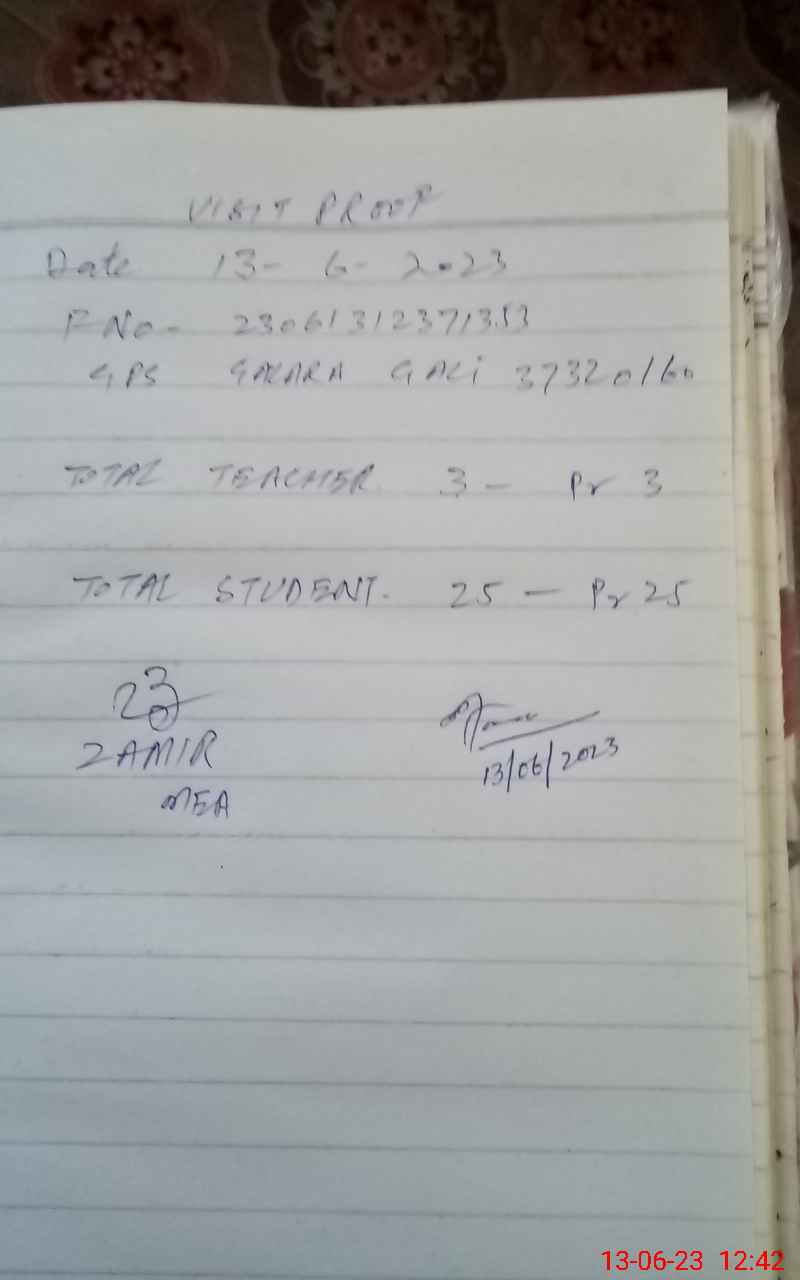 VISIT PROOF
Date 13- 6- 2023
F No- 23061312371353
GPS GALI 37320160
TOTAL TEACHER 3 - Pr 3
TOTAL STUDENT. 25 - Pr 25
ZAMIR
MEA
13/06/2023
13-06-23 12:42